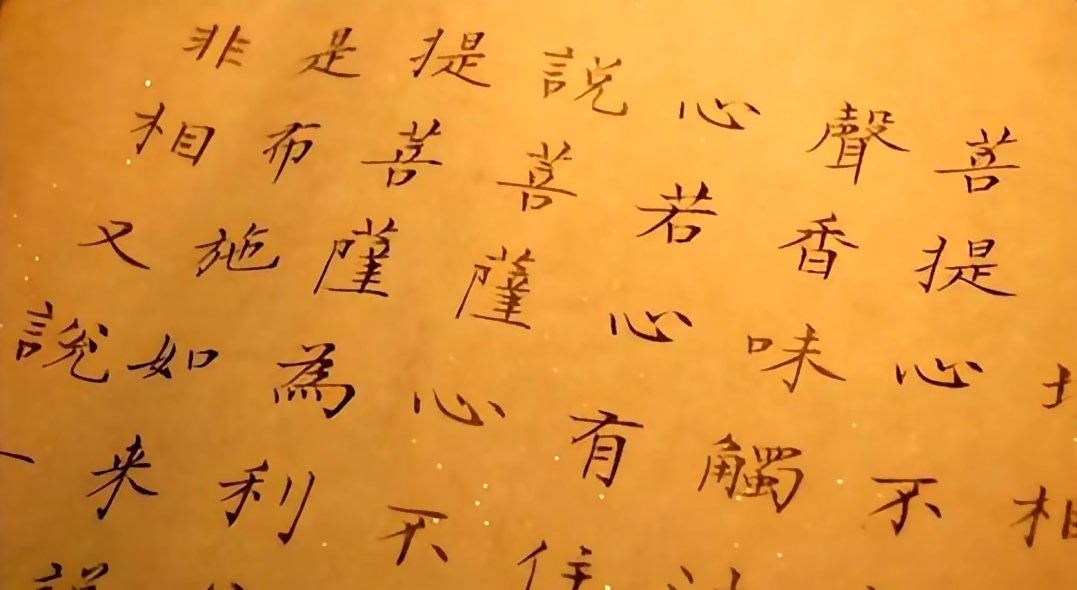 相
菩提心不
聲香味觸
心若心有住
說菩薩心不
提菩薩為利
是布施如来說
非相又說一